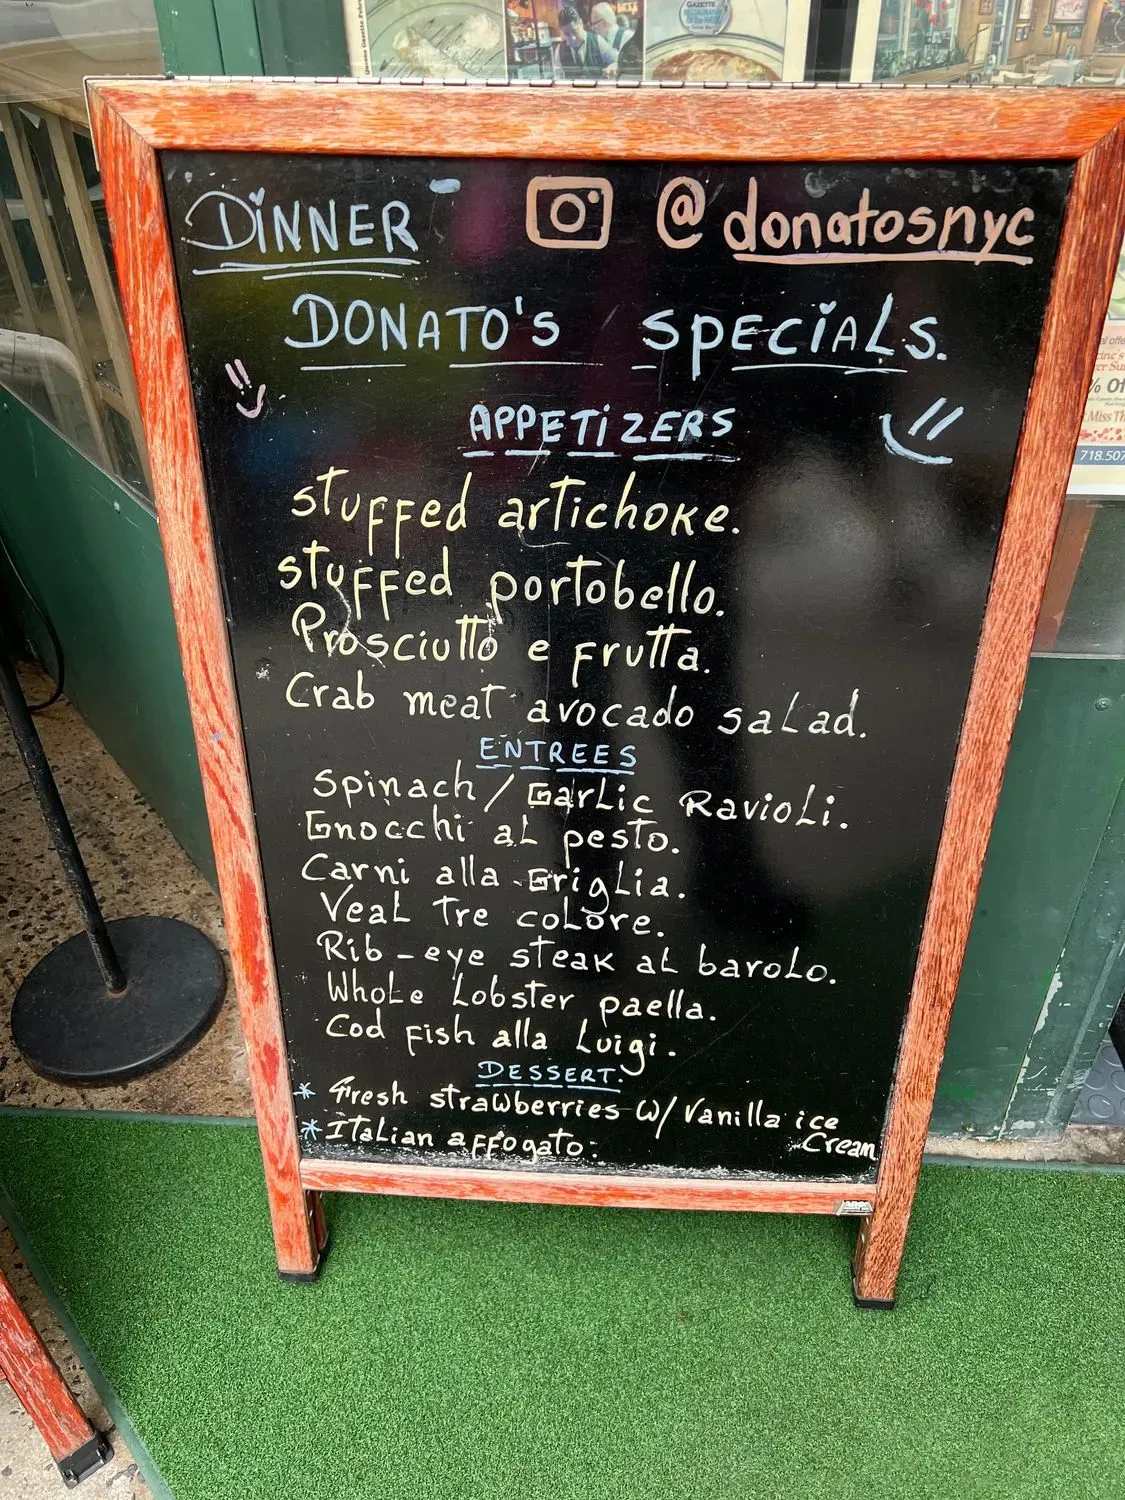 Gazette
DINNER @donatosnyc
DONATO'S SPECIALS.
APPETIZERS
stuffed artichoke.
stuffed portobello.
Prosciutto e frutta.
Crab meat avocado salad.
ENTREES
Spinach/Garlic Ravioli.
Gnocchi al pesto.
Carni alla Griglia.
Veal Tre colore.
Rib-eye steak al barolo.
Whole Lobster paella.
Cod fish alla Luigi.
DESSERT.
* Fresh strawberries w/ Vanilla ice
Cream
* Italian affogato:
% Off
Miss Th
718.507